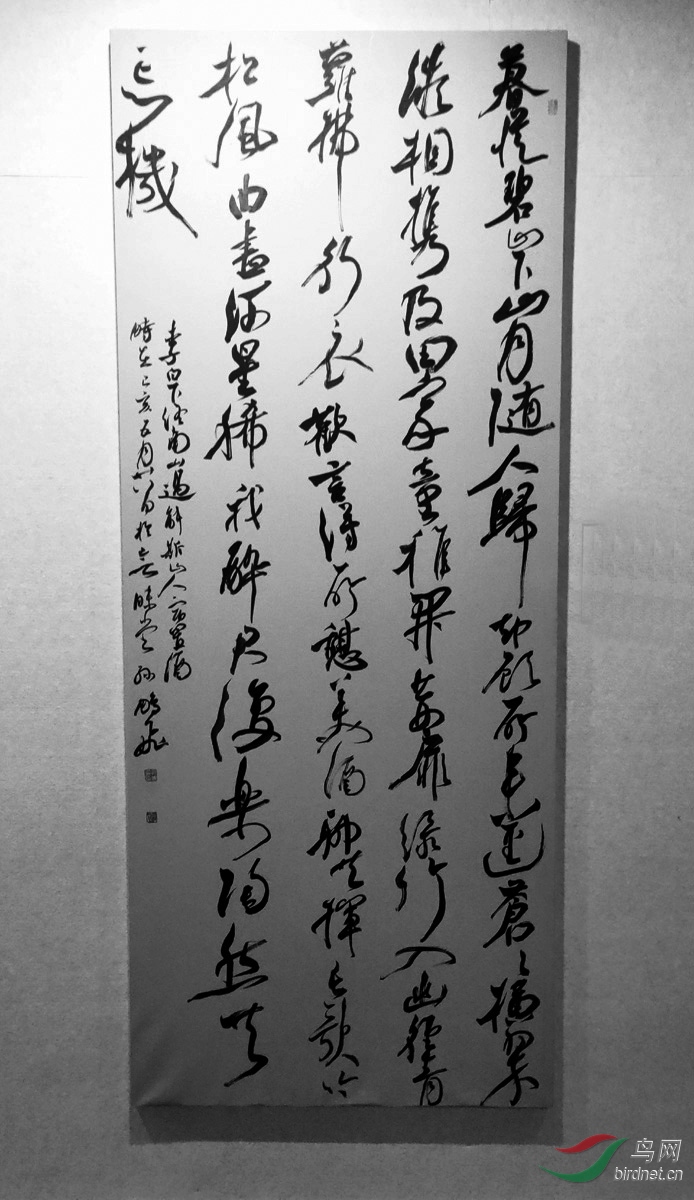 暮從碧山下山月隨人歸却顧所来逕蒼々橫翠
微相携及田家童稚開荊扉綠竹入幽徑青
蘿拂行衣歡言得所憩美酒聊共揮長歌吟
松風曲盡河星稀我醉君復樂陶然共
忘機
李白下終南山過斛斯山人宿置酒
時在己亥五月 日於 堂孙 飛
鸟网
birdnet.cn